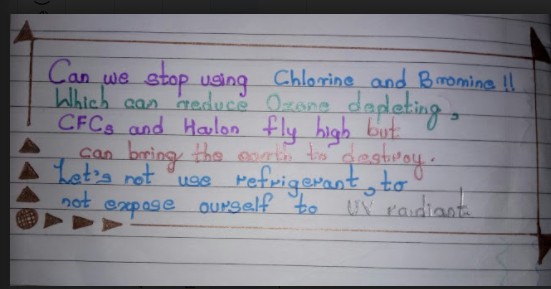 Can we stop using Chlorine and Bromine!!
Which can reduce Ozone depleting,
CFCs and Halon fly high but
can bring the earth to destroy.
Let's not use refrigerant, to
not expose ourself to UV radiant